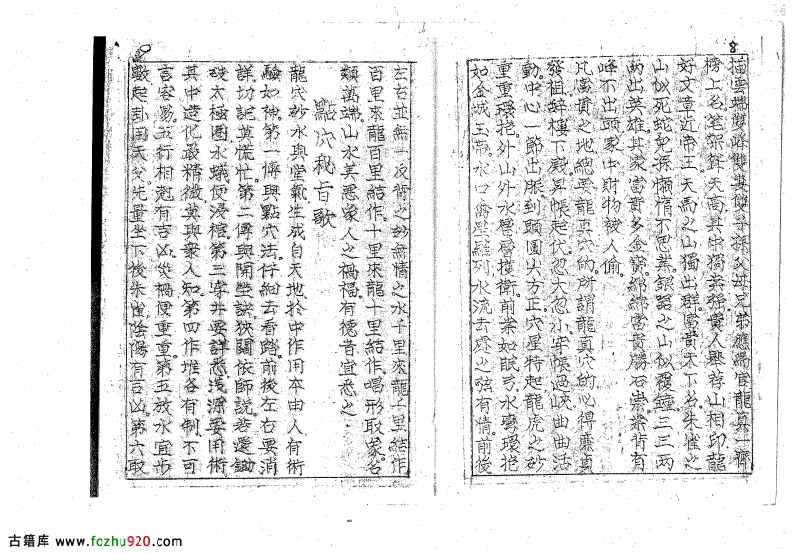 8
插雲端雙峰雙妻雙子孫父母兄弟應為官龍真一齊
榜上名筆架聳天高其中獨秀稱貴人興荐山相印龍
好文章近帝王天馬之山獨出群富貴天下名朱雀之
山似死蛇兒孫懶惰不思茶銀瓶之山似覆鐘三三兩
兩出英雄其家富貴多金寶綿綿富貴勝石崇案背有
峰不出頭家中財物被人偷
凡富貴之地總要龍真穴的所謂龍真穴的心得廉貞
發祖辭樓下殿昇帳起伏忽大忽小穿帳過峽曲曲活
動中心一節出脈到頭圓尖方正穴星特起龍虎之砂
重重環抱外山外水層層擁衛前案如眠弓水彎環抱
如金城玉帶水口禽星羅列水流去處之玄有情前後
9
左右並無一反背之砂無情之水千里來龍千里結作
百里來龍百里結作十里來龍十里結作喝形取象名
類萬端山水其惡象人之禍福有德者宜悉之
點穴秘旨歌
龍穴砂水與堂氣生成自天地於中作用本由人有術
驗如神第一傳與點穴法仔細去看踏前後左右要消
詳切記莫慌忙第二傳與開坐訣狹闊依師說若還鋤
破太極圈水蟻便浸棺第三穿井要詳悉淺深要用術
其中造化最精微莫與眾人知第四作堆各有制不可
言容易五行相尅有吉凶災禍便重重第五放水宜步
數起卦田天父先量坐下後朱雀陰陽有吉凶第六取
古籍库 www.fozhu920.com